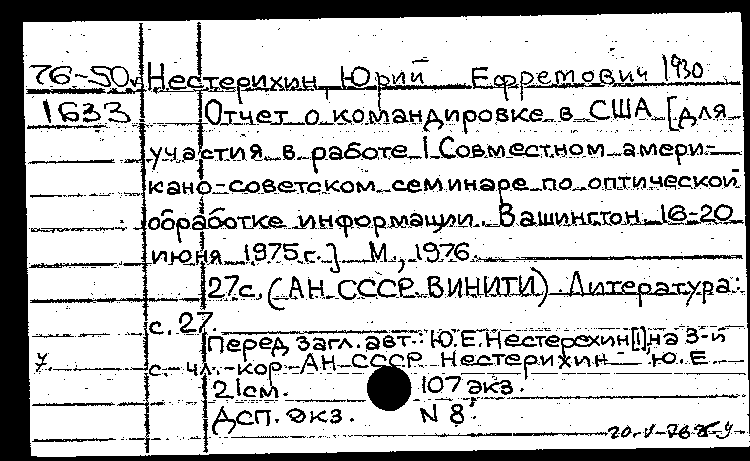 76-50 Нестерихин, Юрий Ефремович 1930
1633 Отчет о командировке в США [для
участия в работе I Совместном амери-
кано-советском семинаре по оптической
обработке информации. Вашингтон 16-20
июня 1975г.] М., 1976.
27с. (АН СССР. ВИНИТИ). Литература:
с. 27.
Перед загл. авт.: Ю.Е.Нестерохин[!], на 3-й
с. - чл.-кор. АН СССР Нестерихин Ю.Е
21см. 107 экз.
ДСП. Экз. N 8.